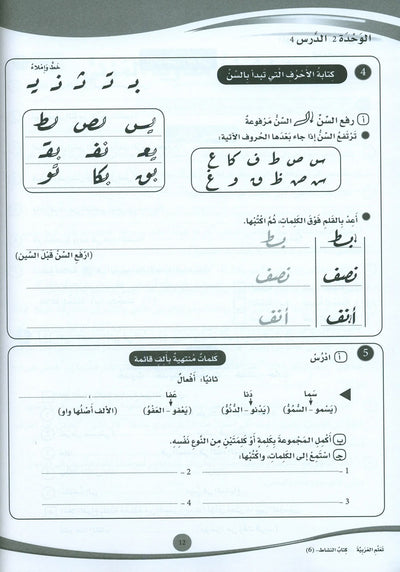 الوَحْدَة 2 الدَّرس 4
خَطٌّ وَإِمْلاءٌ
4 كتابة الأحرف التي تبدأ بالسّنّ
بـ تـ ثـ نـ يـ
أ رفع السّنّ السّنّ مَرْفوعةً
● تَرْتَفعُ السّنُّ إذا جاءَ بَعْدَها الحُروف الآتية:
س ص ط ف كا ع
ش ض ظ ق و غ
يس نص بط
يع نف بق
بو بكا نو
● أَعِدْ بالقَلَمِ فَوْقَ الكَلِماتِ، ثُمَّ اكْتُبْها.
بط بط
(ارْفَعِ السِّنَّ قَبْلَ السِّين)
نصف نصف
أنف أنف
5 كلماتٌ مُنتهيةٌ بألفٍ قائمة
أ ادْرُسْ
ثانيًا: أَفْعالٌ
سَما دَنا عَفا ، ................
(يَسْمو - السُّمُوّ) (يَدْنو - الدُّنُوّ) (يَعْفو - العَفْوُ) (الألف أَصْلُها واو)
ب أَكْمِلِ المَجْموعَةَ بِكَلِمَةٍ أَوْ كَلِمَتَيْنِ مِنَ النَّوْعِ نَفْسِهِ.
ج اسْتَمِعْ إلى الكَلِماتِ، واكْتُبْها:
1 - 2 -
3 - 4 -
12
تعلّم العَرَبِيَّة كتابُ النّشاط - (6)